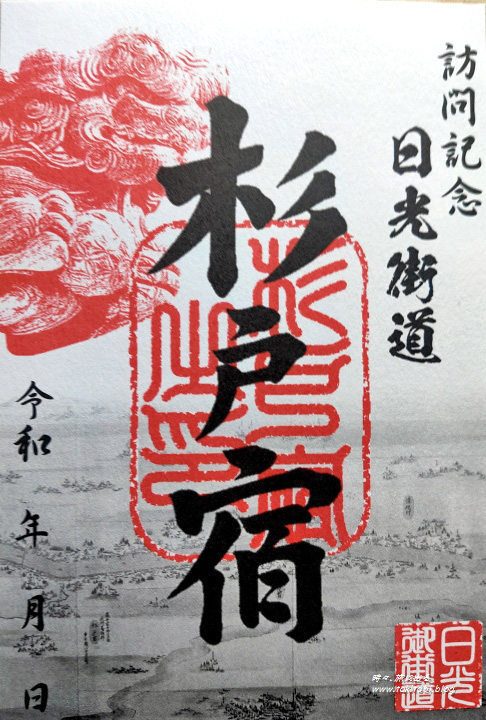 訪問記念
日光街道
杉戸宿
令和 年 月 日
杉戸宿
之印
日光
御街道
時々、旅に出る。
www.tokitabi.blog